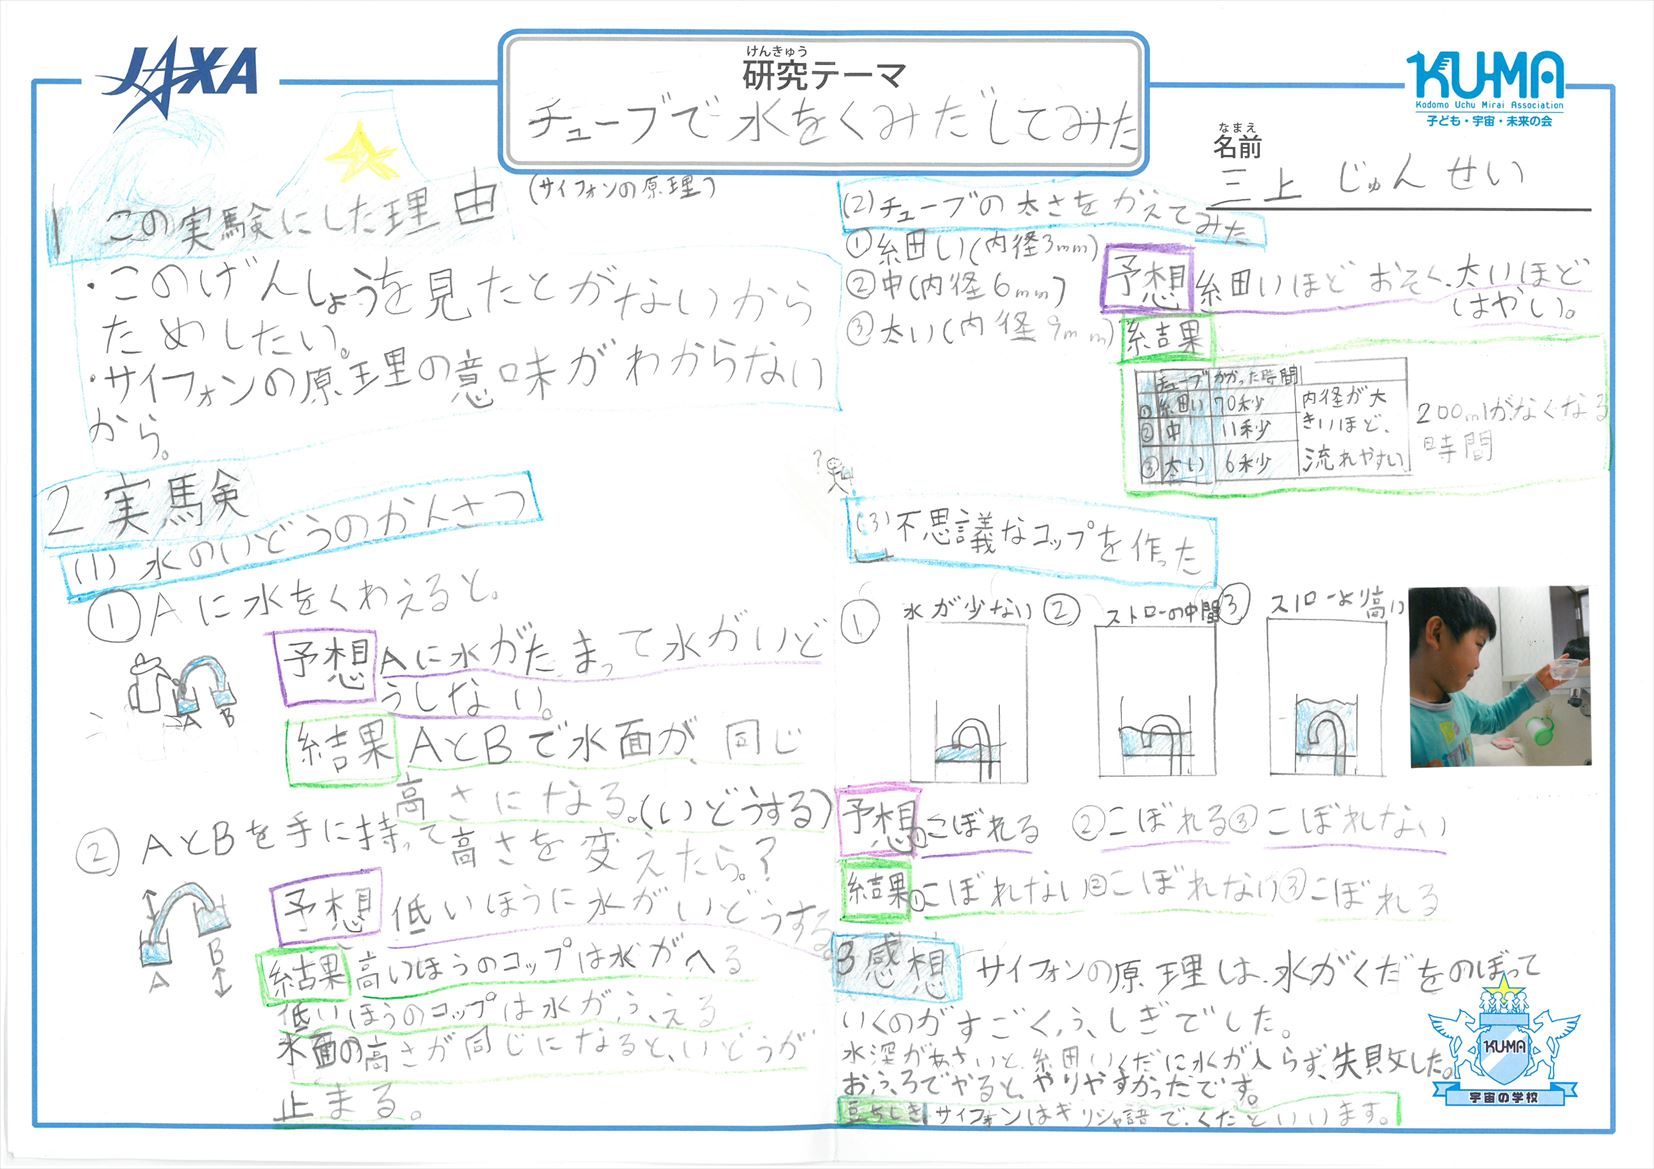 JAXA
けんきゅう
研究テーマ
チューブで水をくみだしてみた
(サイフォンの原理)
KU-MA
Kodomo Uchu Mirai Association
子ども・宇宙・未来の会
なまえ
名前
三上 じゅんせい
1 この実験にした理由
・このげんしょうを見たとがないから
ためしたい。
・サイフォンの原理の意味がわからない
から。
2 実験
(1) 水のいどうのかんさつ
① Aに水をくわえると。
予想 Aに水がたまって水がいど
うしない。
A B
結果 AとBで水面が、同じ
高さになる。(いどうする)
② AとBを手に持って高さを変えたら。?
予想 低いほうに水がいどうする。
A B
結果 高いほうのコップは水がへる
低いほうのコップは水がふえる
水面の高さが同じになると、いどうが
止まる。
(2) チューブの太さをかえてみた
①細い(内径3mm)
②中(内径6mm)
③太い(内径9mm)
予想 細いほどおそく、太いほど
はやい。
結果
チューブ かかった時間
①細い 70秒
②中 11秒
③太い 6秒
内径が大
きいほど、
流れやすい
200mlがなくなる
時間
?
(3) 不思議なコップを作った
① 水が少ない ② ストローの中間 ③ ストローより高い
予想 ①こぼれる ②こぼれる ③こぼれない
結果 ①こぼれない ②こぼれない ③こぼれる
3 感想 サイフォンの原理は、水がくだをのぼって
いくのがすごくふしぎでした。
水深があさいと、細いくだに水が入らず、失敗した。
おふろでやると、やりやすかったです。
豆ちしき サイフォンはギリシャ語で、くだといいます。
KU-MA
宇宙の学校